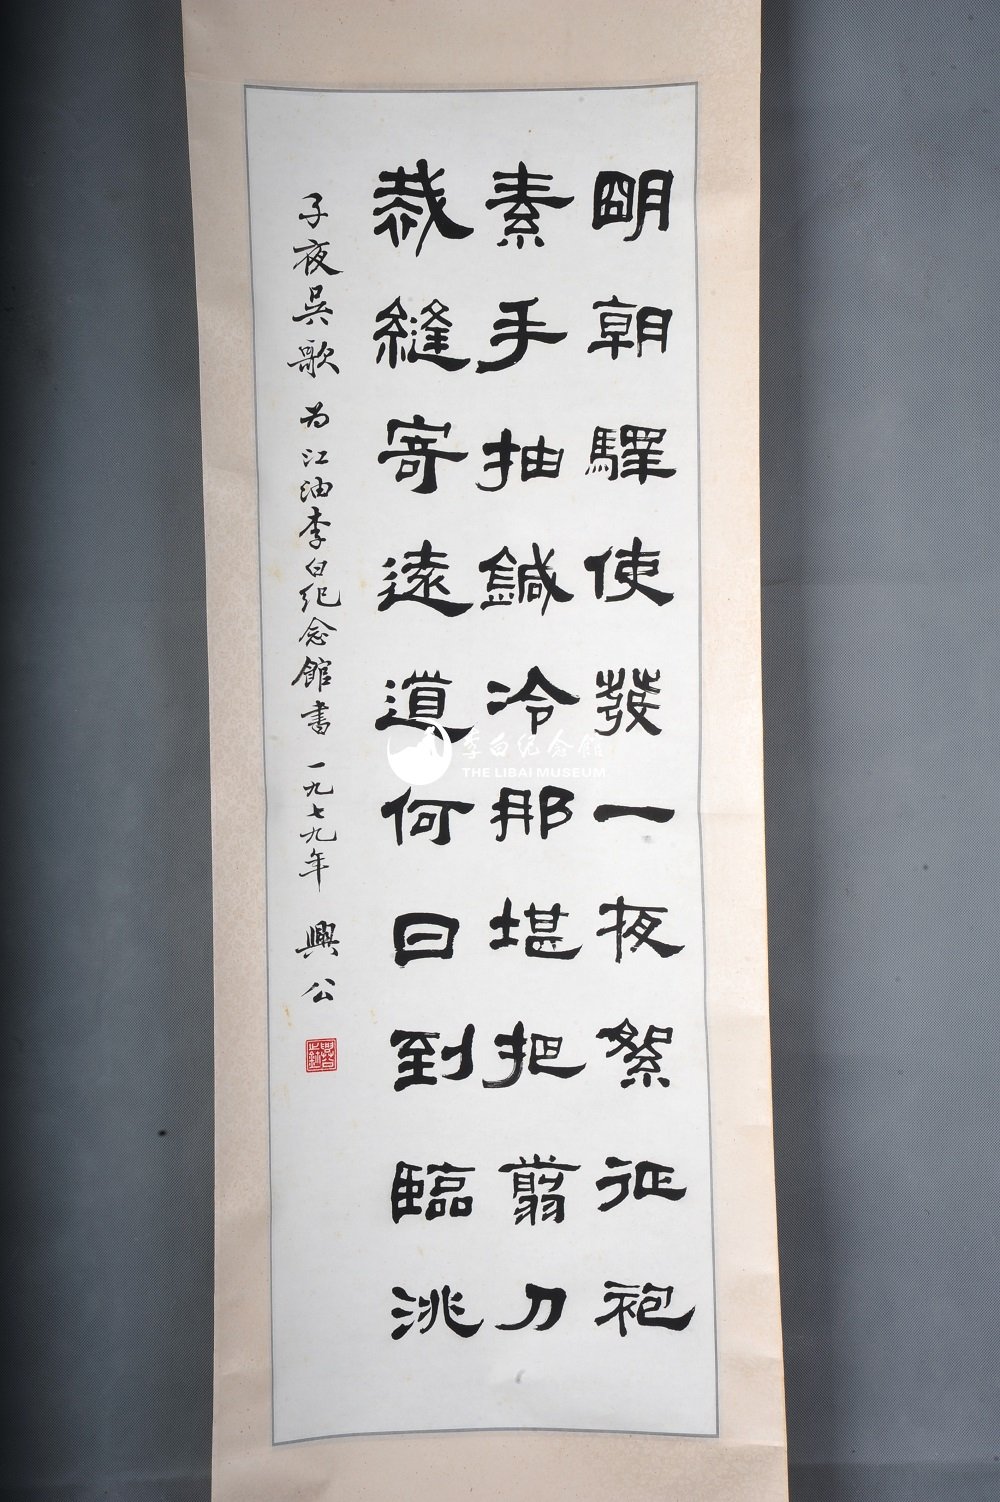 明朝驛使發一夜絮征袍
素手抽鍼冷那堪把翦刀
裁縫寄遠道何日到臨洮
子夜吳歌 为江油李白纪念館書 一九七九年 興公
李白纪念館
THE LIBAI MUSEUM